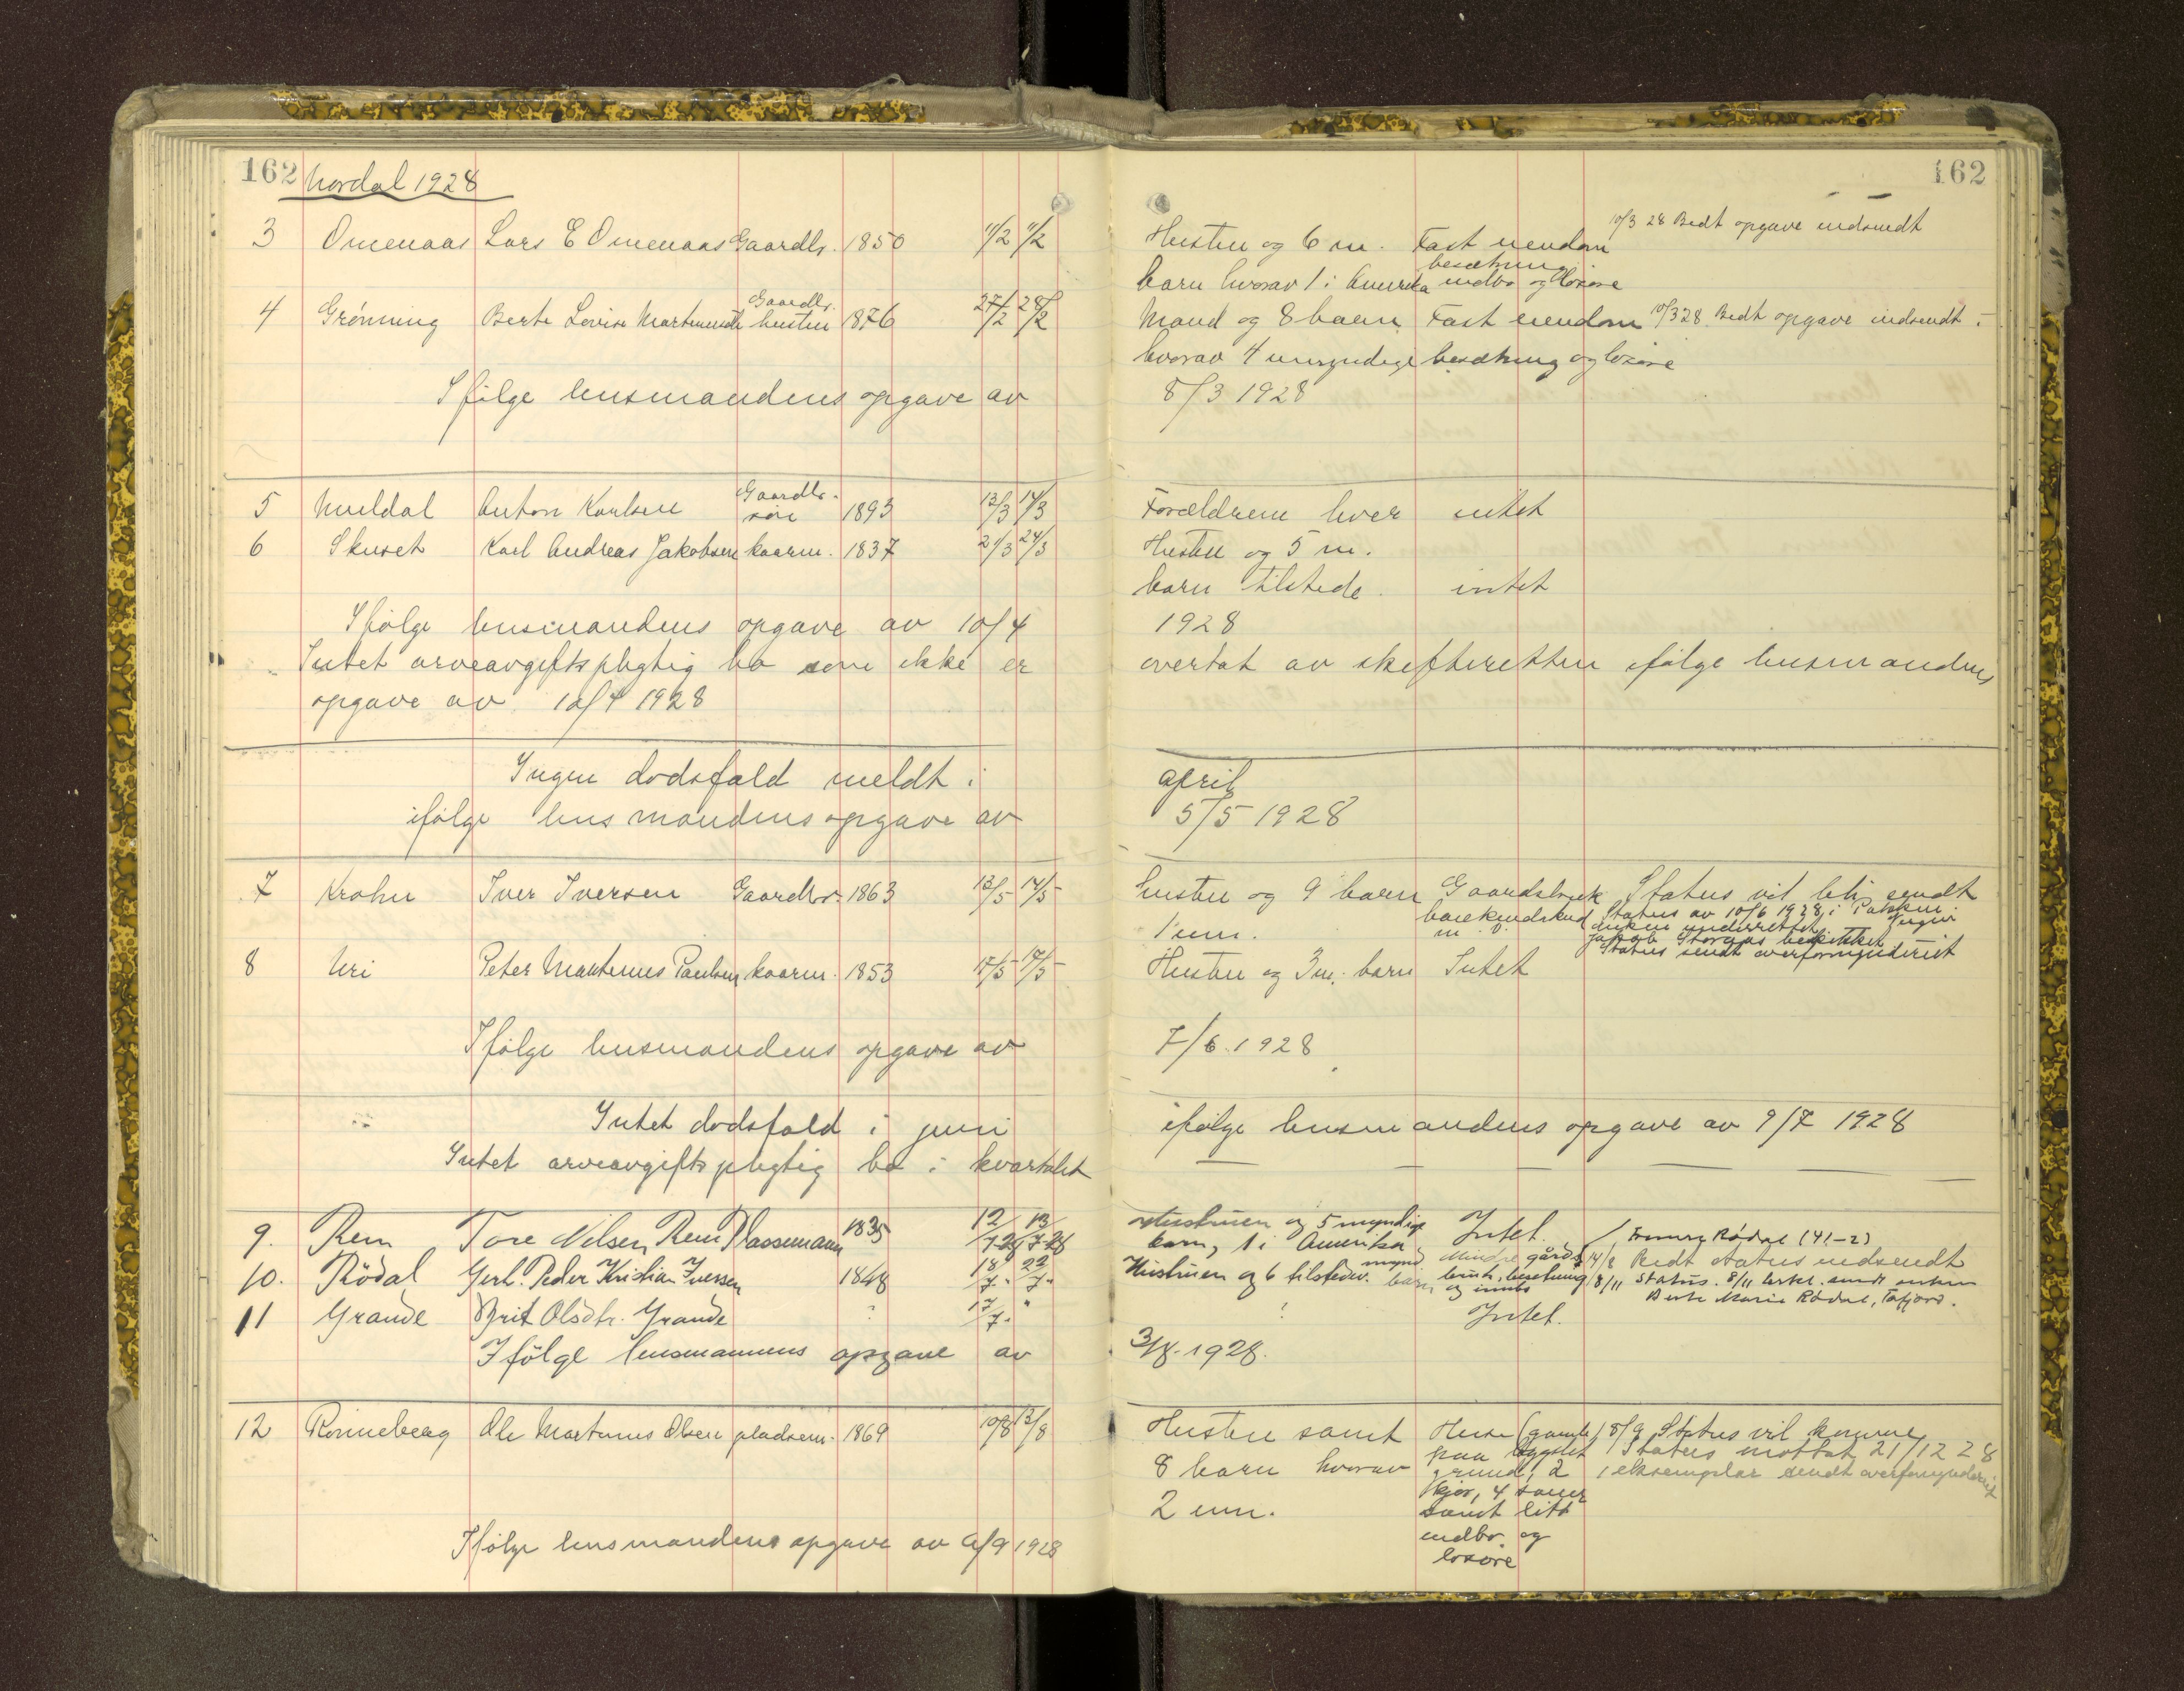 162 Nordal 1928 162
3 Omenaas Lars E Omenaas Gaardbr. 1850 11/2 11/2 Hustru og 6 m. Fast eiendom 10/3 28 Bedt opgave indsendt
besætning
barn hvorav 1 i Amerika indbo og løsøre
4 Grønning Berte Lovise Martinusdtr Gaardbr. hustru 1876 27/2 28/2 Mand og 8 barn Fast eiendom 10/3 28 Bedt opgave indsendt
hvorav 4 umyndige besætning og løsøre
Ifølge lensmandens opgave av 8/3 1928
5 Muldal Anton Karlsen Gaardbr. søn 1893 13/3 14/3 Forældrene lever intet
6 Skuset Karl Andreas Jakobsen kaarm. 1837 21/3 24/3 Hustru og 5 m.
barn tilstede intet
Ifølge lensmandens opgave av 10/4 1928
Intet arveavgiftspligtig bo som ikke er overtat av skifteretten ifølge lensmandens
opgave av 10/4 1928
Ingen dødsfald meldt i april
ifølge lensmandens opgave av 5/5 1928
7 Krohn Iver Iversen Gaardbr. 1863 13/5 14/5 hustru og 9 barn Gaardsbruk Status vil bli sendt
Status av 10/6 1928 i
1 um. m. v. underrettet
Status sendt overformynderiet
8 Uri Peter Martinus Paulsen kaarm. 1853 15/5 17/5 Hustru og 3 m. barn Intet
Ifølge lensmandens opgave av 7/6. 1928
Intet dødsfald i juni ifølge lensmandens opgave av 9/7 1928
Intet arveavgiftspligtig bo i kvartalet — — — —
9. Rem Tore Nilsen Rem Plassemann 1835 12/7 28 13/7 28 Hustruen og 5 myndige Intet.
barn, 1 i Amerika Rødal (41-2)
10. Rödal Peder Kristian Iversen 1848 18/7 22/7 Hustruen og 6 tilstedev. mynd. barn Mindre gårds bruk, besetning og innbo 14/8 Bedt status indsendt
8/11 Status. 8/11
Berte Marie Rødal, Tafjord.
11 Grande Brit Olsdtr. Grande ? 17/7 " ? Intet.
Ifölge lensmannens opgave av 3/8-1928.
12 Rønneberg Ole Martinus Olsen pladsem. 1869 10/8 13/8 Hustru samt Huse (gamle) 8/9 Status vil komme
8 barn hvorav paa bygslet Status mottat 21/12 28
grund, 2 1 eksemplar sendt overformynderiet
2 um. kjør, 4 sauer
samt litt
indbo og
løsøre
Ifølge lensmandens opgave av 6/9 1928